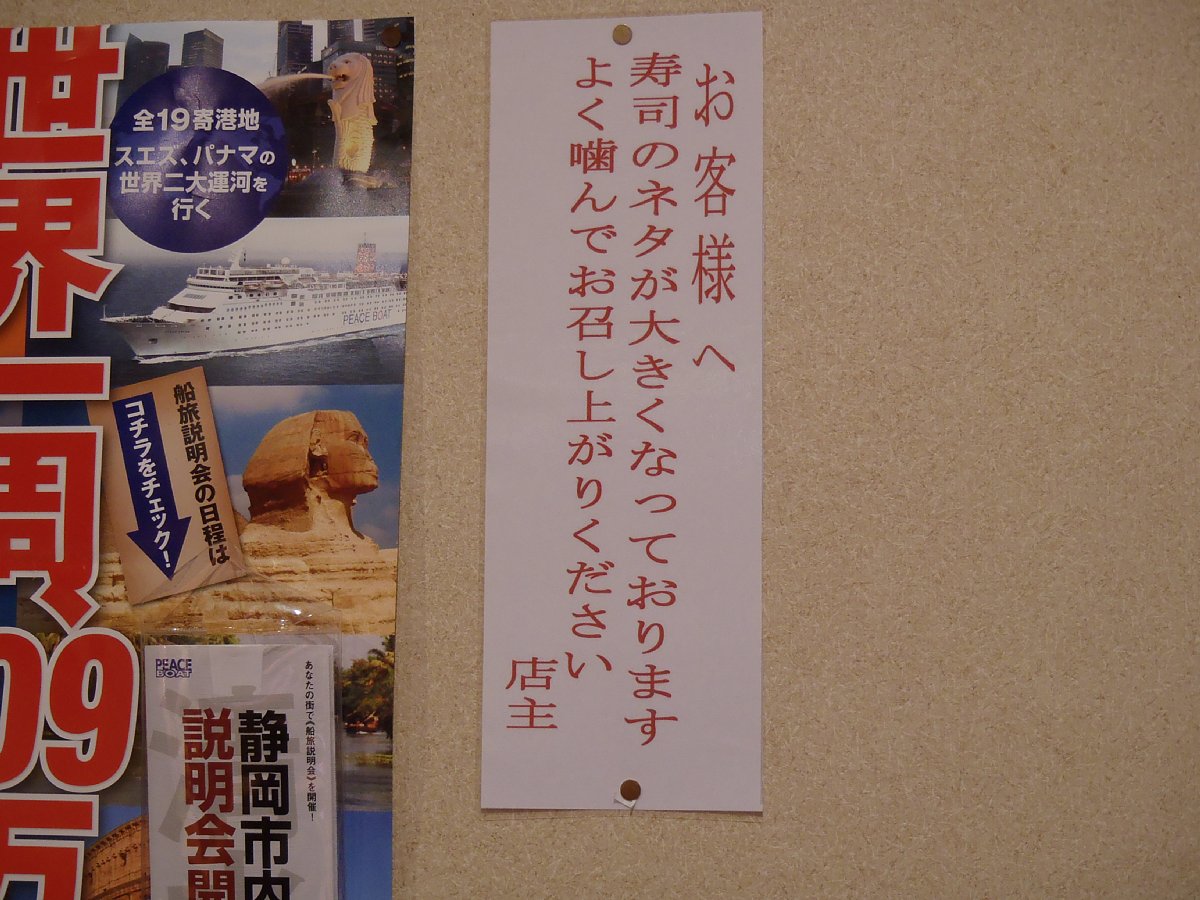 お客様へ
寿司のネタが大きくなっております
よく噛んでお召し上がりください
店主
世界一周
99万
全19寄港地
スエズ、パナマの
世界二大運河を
行く
PEACE BOAT
船旅説明会の日程は
コチラをチェック!
PEACE
BOAT
あなたの街で《船旅説明会》を開催!
静岡市内
説明会開